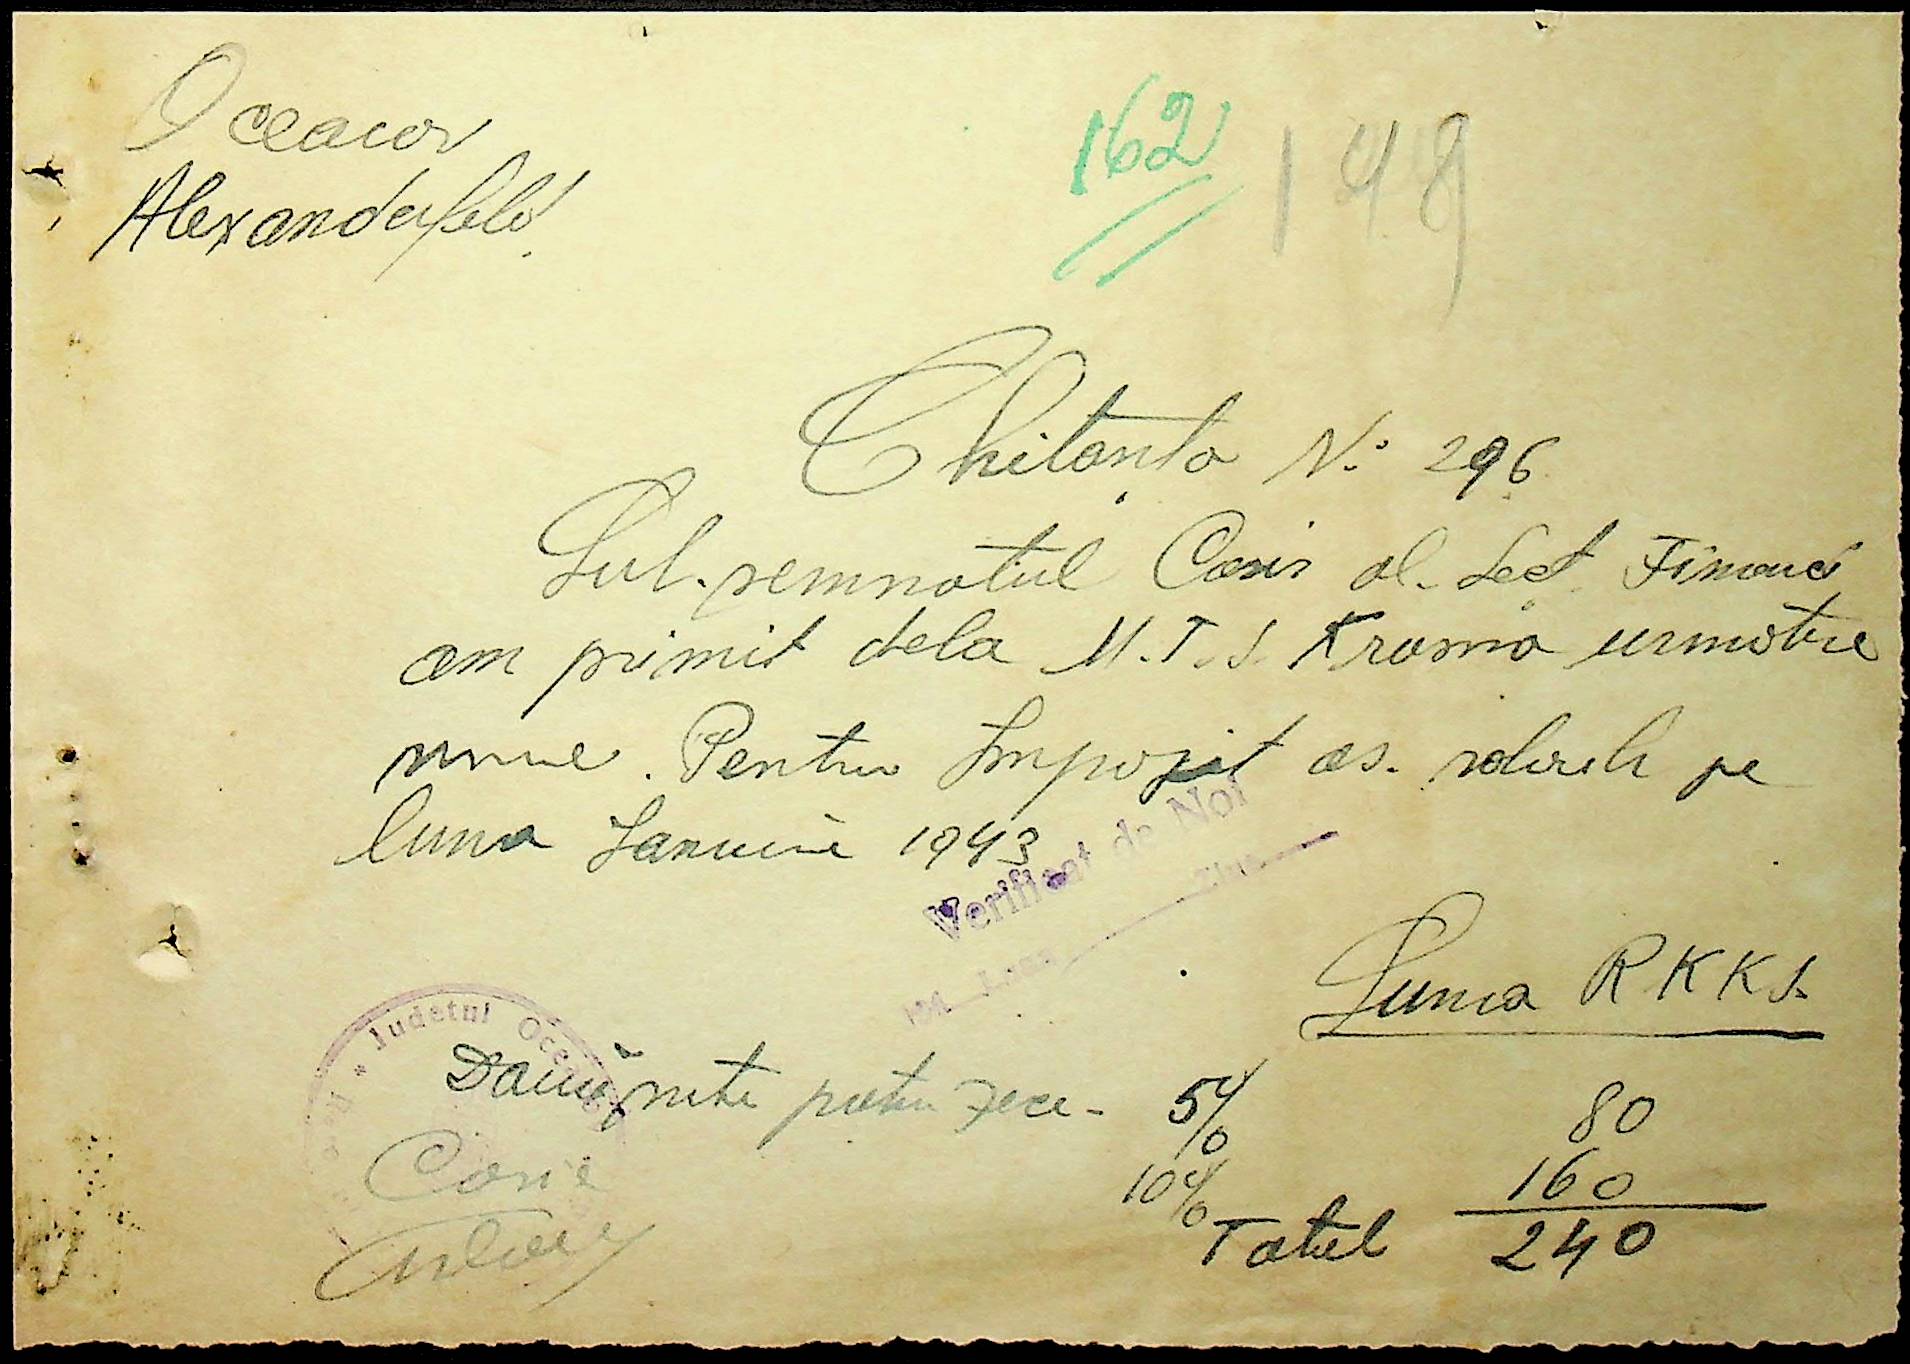 Oceacov
Alexanderfeld
162
148
Chitanta N: 296
Sub. semnatul Casier al. Sect. Financi
am primit dela M.T.S. Krasna urmatoare
sume. Pentru Impozit as. salarile pe
luna Januarie 1943
Verificat de Noi
Luna Ziua
Suma RKKS.
Judetul Oceacov
Douăsute patru zece - 5% 80
Casier 10% 160
Total 240